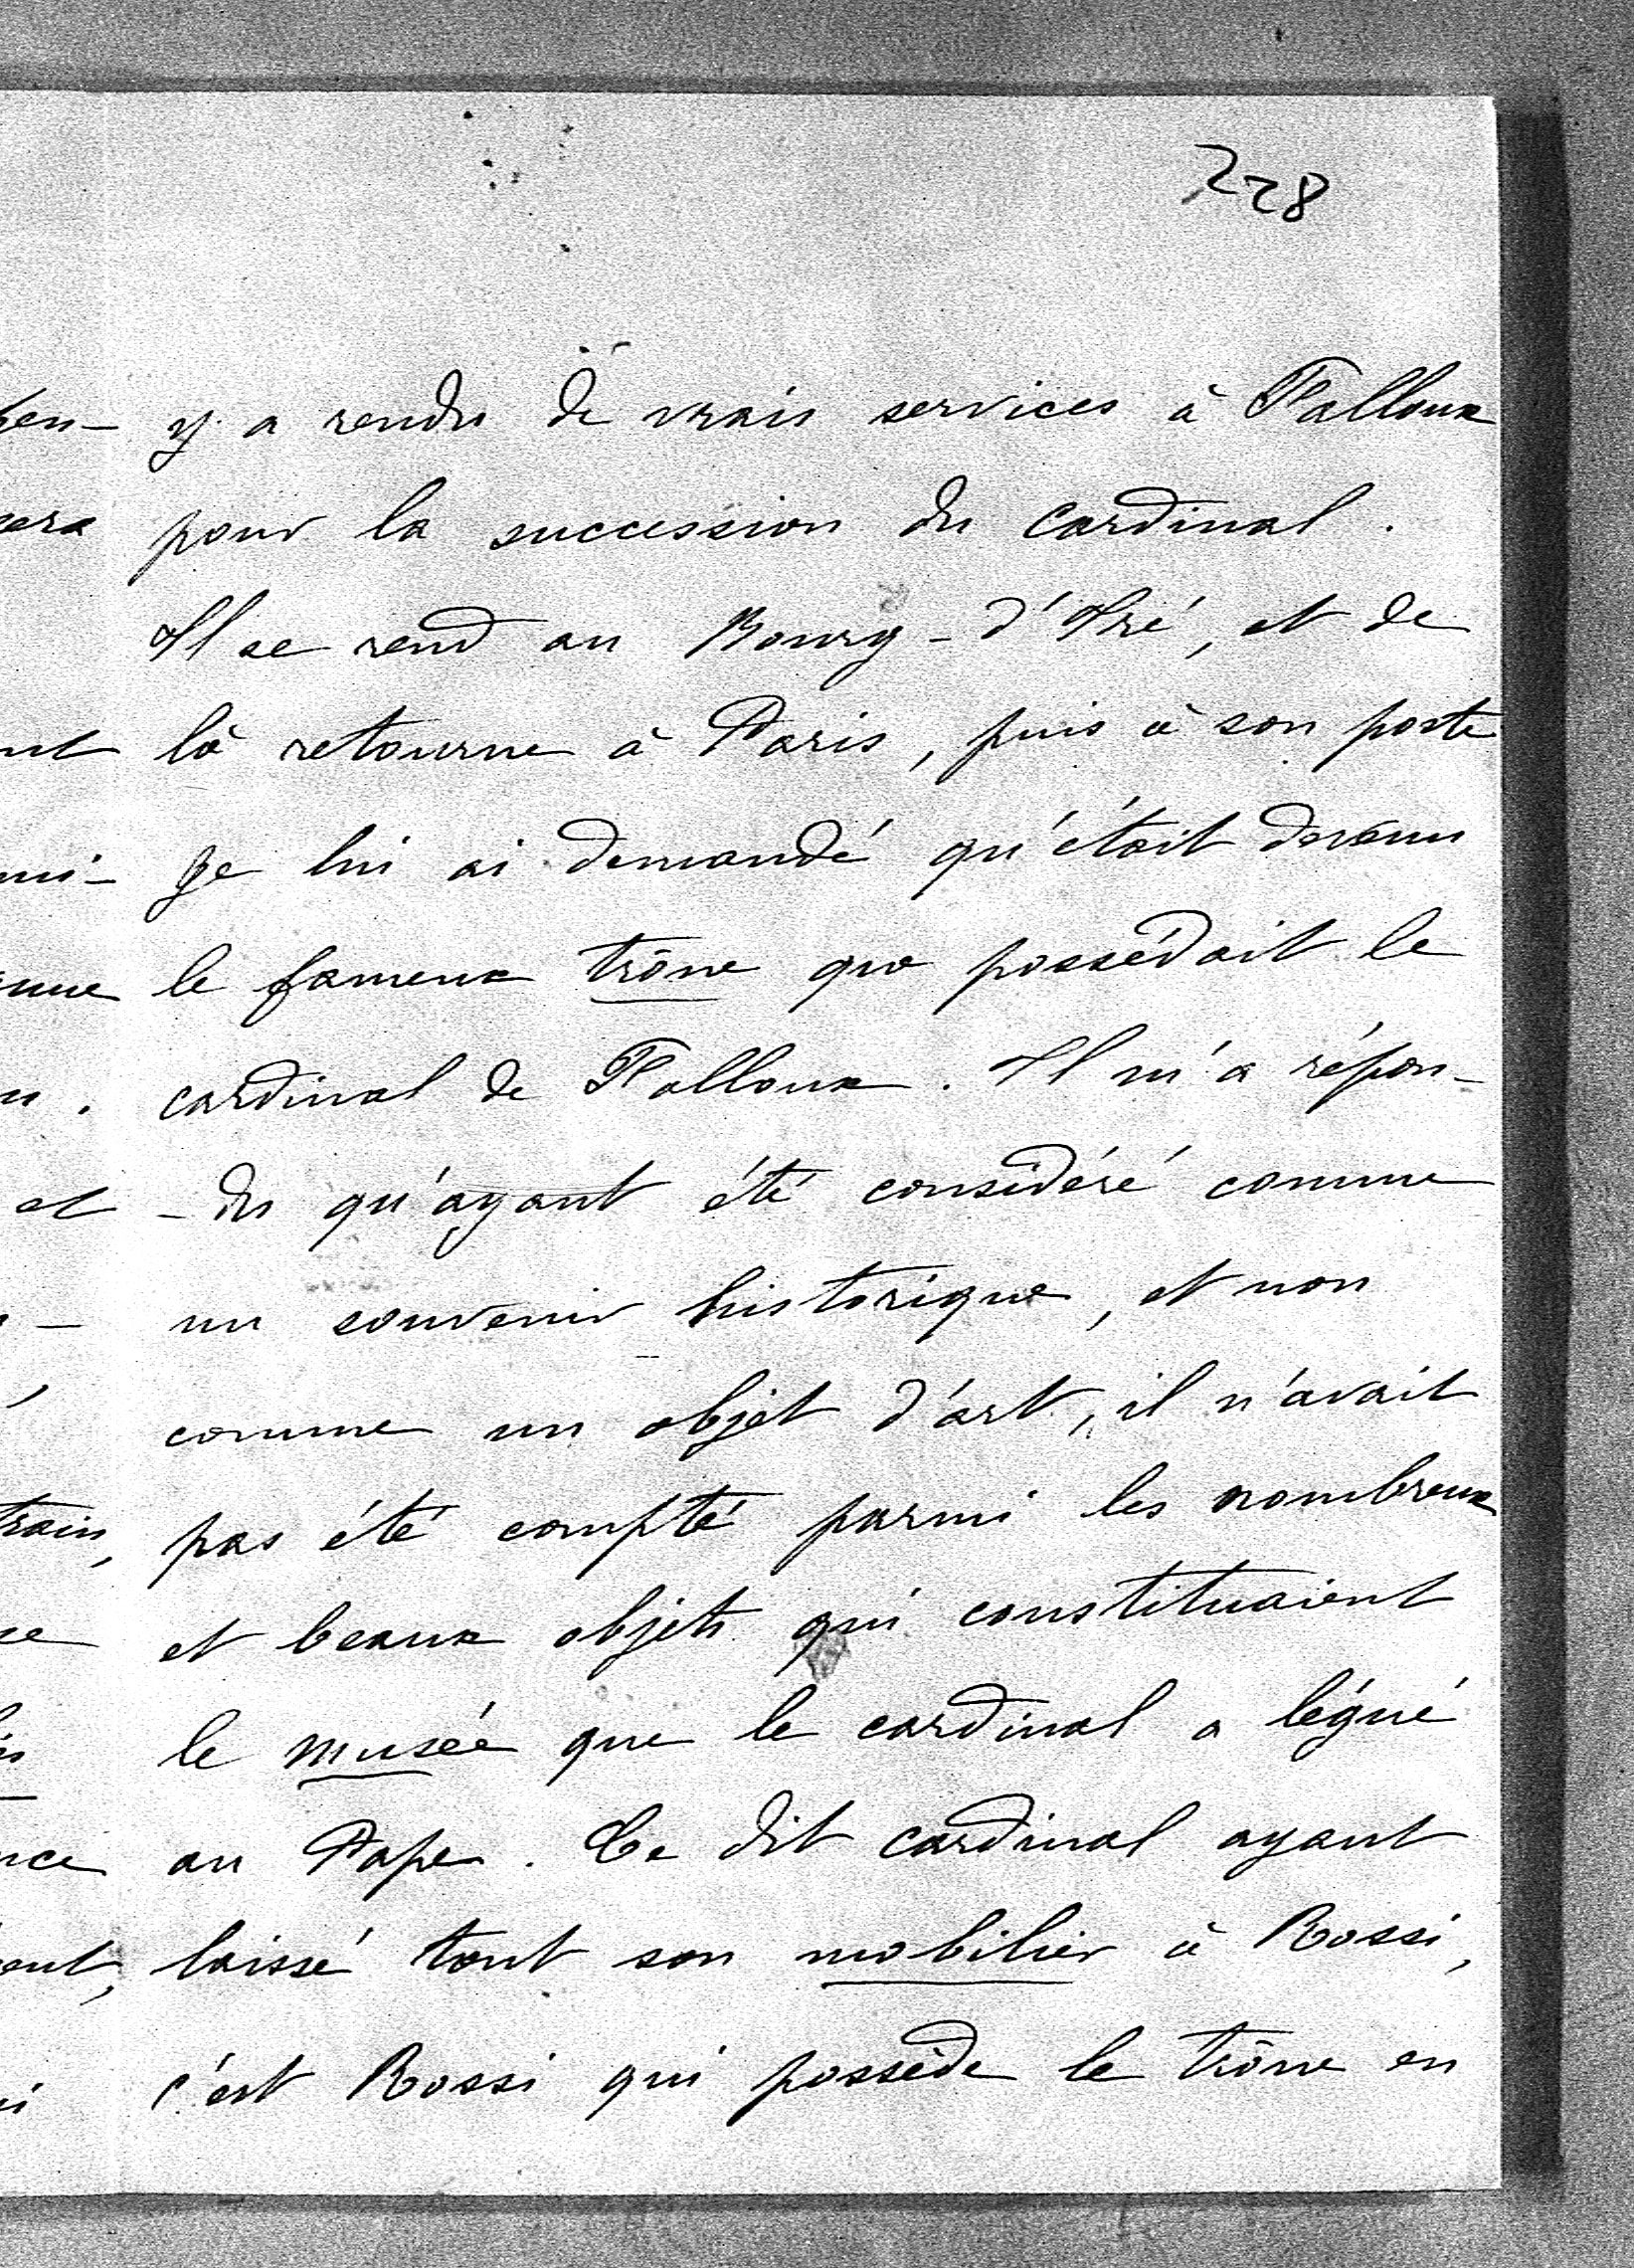 228
y a rendu de vrais services à Falloux
pour la succession du cardinal.
Il se rend au Bourg-d'Iré, et de
là retourne à Paris, puis à son poste
Je lui ai demandé qu'était devenu
le fameux trône que possédait le
cardinal de Falloux. Il m'a répon-
-du qu'ayant été considéré comme
un souvenir historique, et non
comme un objet d'art, il n'avait
pas été compté parmi les nombreux
et beaux objets qui constituaient
le musée que le cardinal a légué
au Pape. Ce dit cardinal ayant
laissé tout son mobilier à Rossi,
c'est Rossi qui possède le trône en